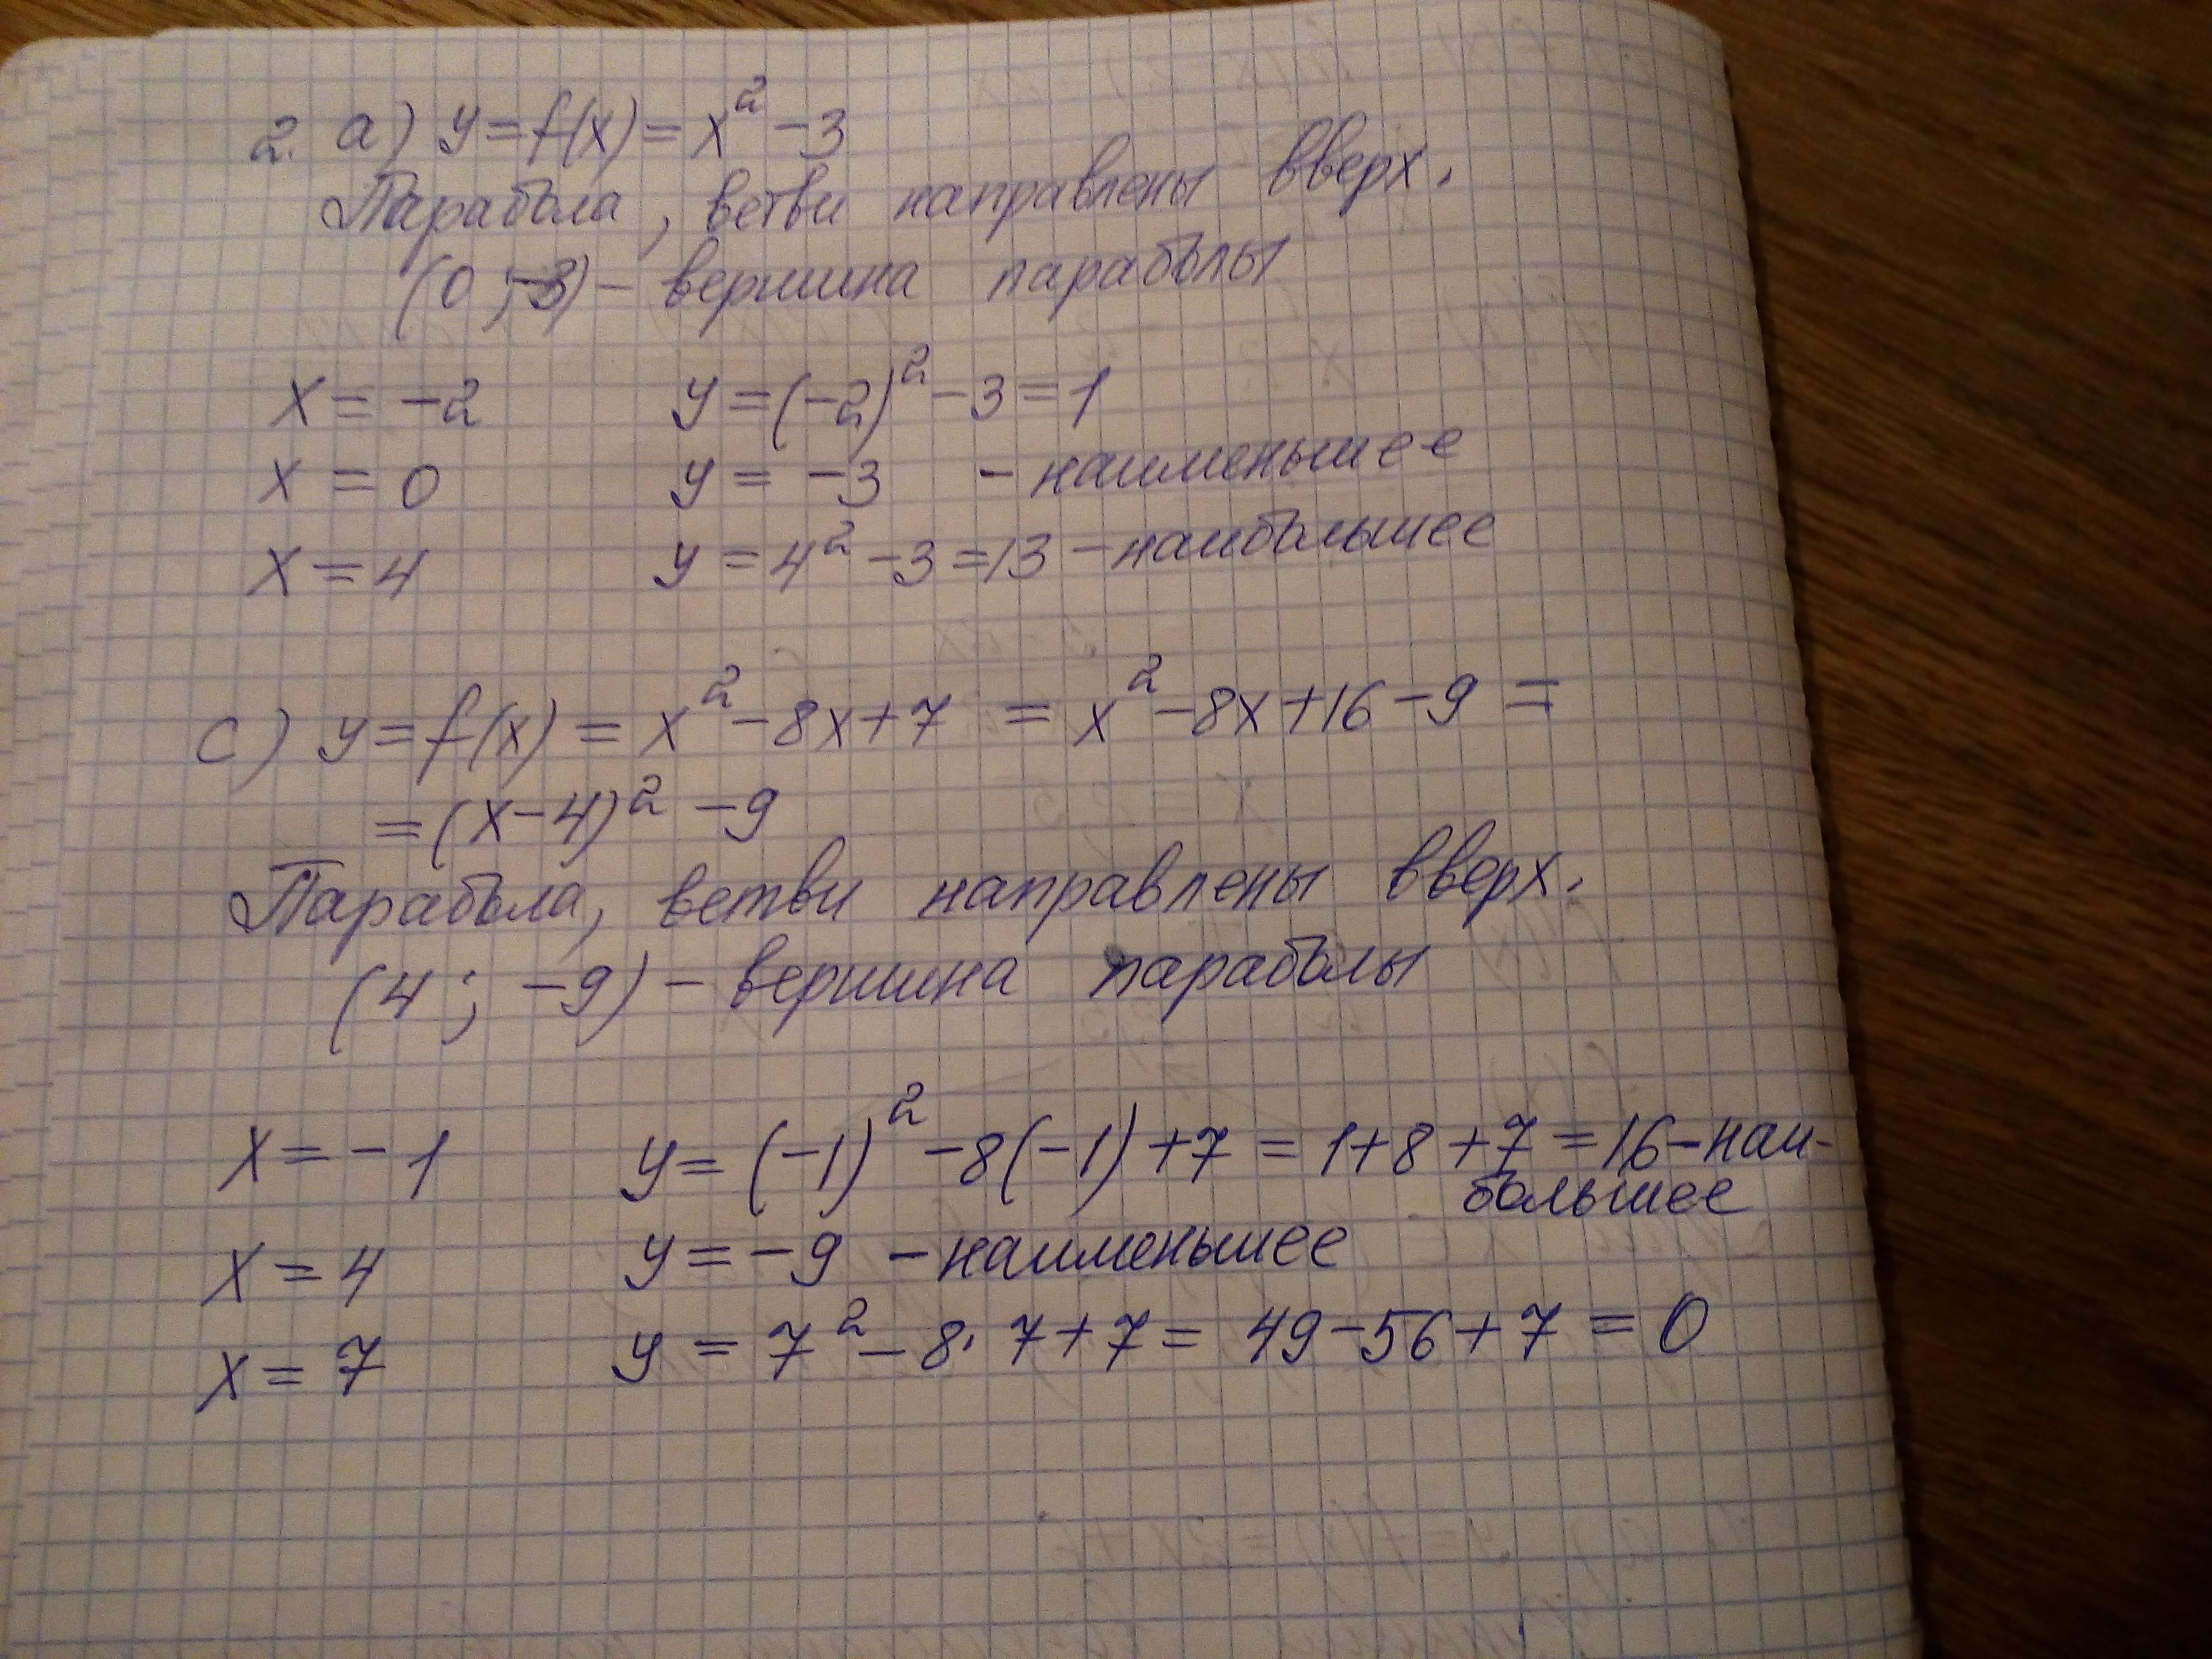 2. a) y = f(x) = x² - 3
Парабола, ветви направлены вверх.
(0 ; -3) - вершина параболы
x = -2 y = (-2)² - 3 = 1
x = 0 y = -3 - наименьшее
x = 4 y = 4² - 3 = 13 - наибольшее
c) y = f(x) = x² - 8x + 7 = x² - 8x + 16 - 9 =
= (x - 4)² - 9
Парабола, ветви направлены вверх.
(4 ; -9) - вершина параболы
x = -1 y = (-1)² - 8(-1) + 7 = 1 + 8 + 7 = 16 - наи-
большее
x = 4 y = -9 - наименьшее
x = 7 y = 7² - 8 · 7 + 7 = 49 - 56 + 7 = 0